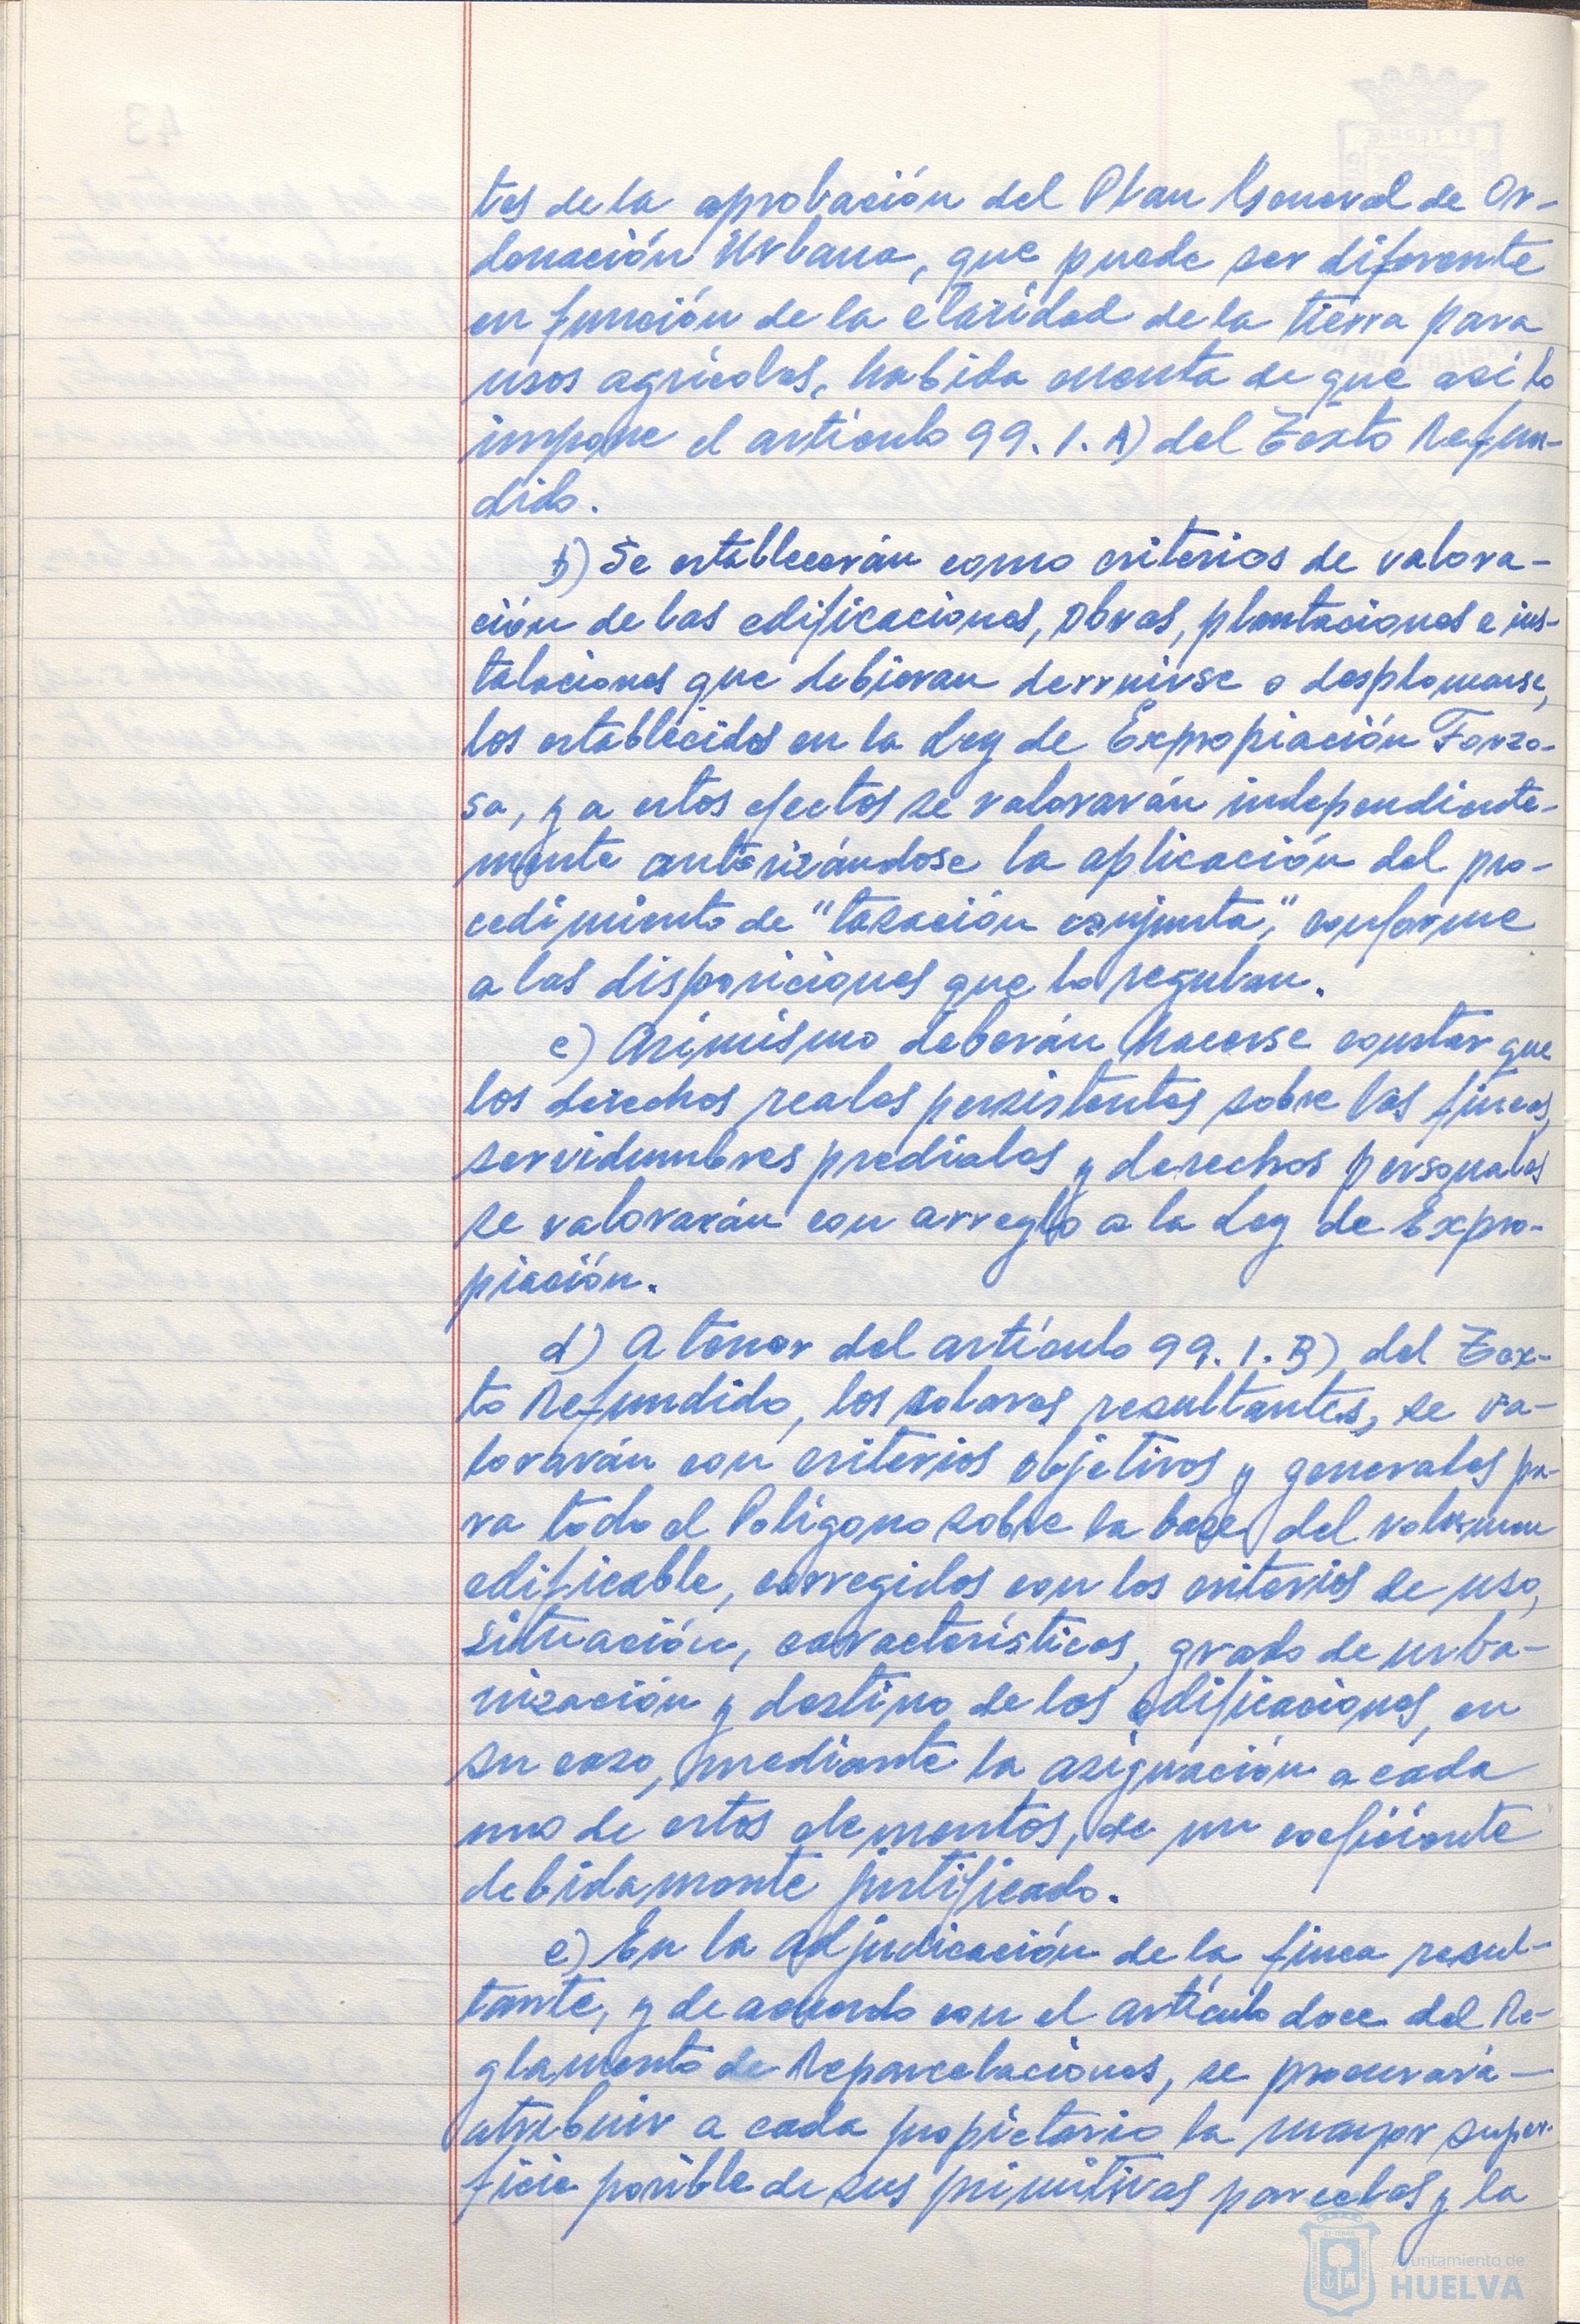 tes de la aprobación del Plan General de Or-
denación Urbana, que puede ser diferente
en función de la claridad de la tierra para
usos agrícolas, habida cuenta de que así lo
impone el artículo 99.1.A) del Texto Refun-
dido.
b) Se establecerán como criterios de valora-
ción de las edificaciones, obras, plantaciones e ins-
talaciones que debieran derruirse o desplomarse,
los establecidos en la Ley de Expropiación Forzo-
sa, y a estos efectos se valorarán independiente-
mente autorizándose la aplicación del pro-
cedimiento de "tasación conjunta", conforme
a las disposiciones que lo regulan.
c) Asimismo deberán hacerse constar que
los derechos reales persistentes sobre las fincas,
servidumbres prediales y derechos personales
se valorarán con arreglo a la Ley de Expro-
piación.
d) A tenor del artículo 99.1.B) del Tex-
to Refundido, los solares resultantes, se va-
lorarán con criterios objetivos y generales pa-
ra todo el Polígono sobre la base del volumen
edificable, corregidos con los criterios de uso,
situación, características, grado de urba-
nización y destino de las edificaciones, en
su caso, mediante la asignación a cada
uno de estos elementos, de un coeficiente
debidamente justificado.
e) En la adjudicación de la finca resul-
tante, y de acuerdo con el artículo doce del Re-
glamento de Reparcelaciones, se procurará —
atribuir a cada propietario la mayor super-
ficie posible de sus primitivas parcelas y la
Ayuntamiento de
HUELVA